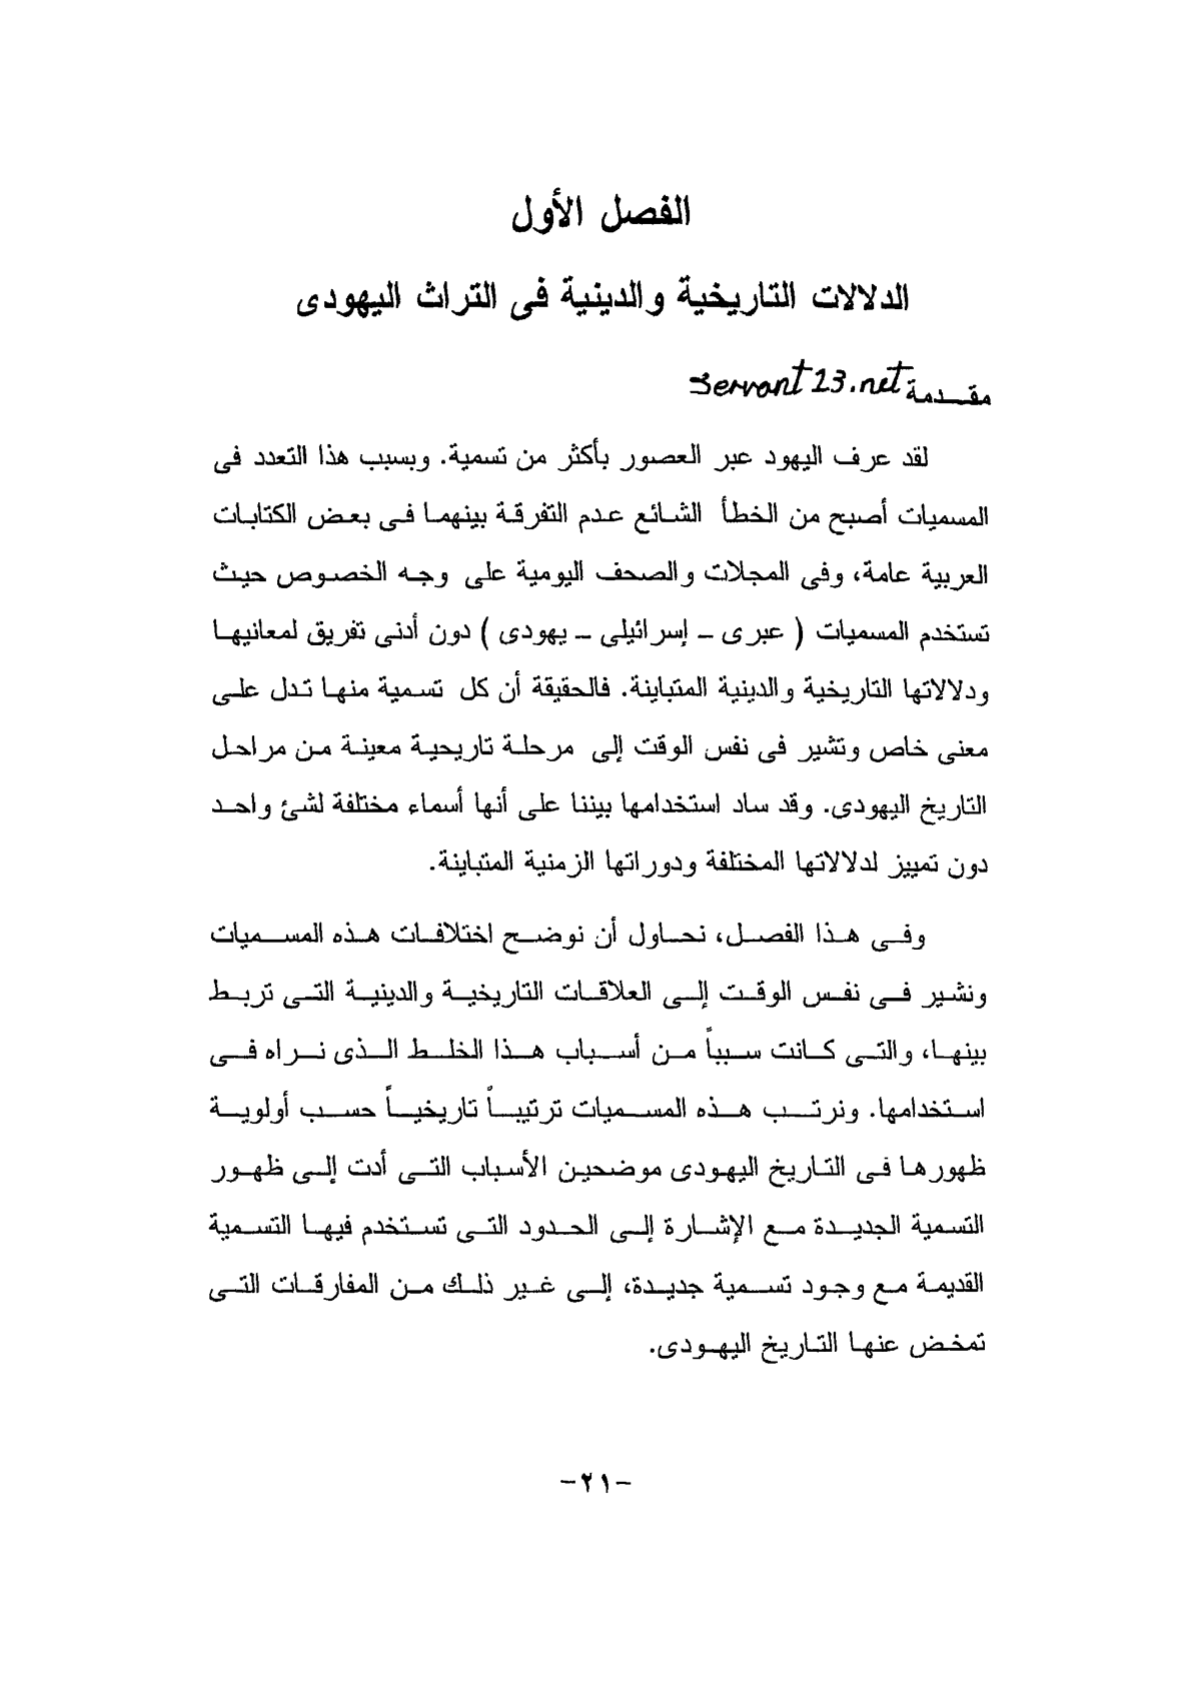 الفصل الأول
الدلالات التاريخية والدينية فى التراث اليهودى
مقدمة servant13.net
لقد عرف اليهود عبر العصور بأكثر من تسمية. وبسبب هذا التعدد فى
المسميات أصبح من الخطأ الشائع عدم التفرقة بينهما فى بعض الكتابات
العربية عامة، وفى المجلات والصحف اليومية على وجه الخصوص حيث
تستخدم المسميات ( عبرى – إسرائيلى – يهودى ) دون أدنى تفريق لمعانيها
ودلالاتها التاريخية والدينية المتباينة. فالحقيقة أن كل تسمية منها تدل على
معنى خاص وتشير فى نفس الوقت إلى مرحلة تاريحية معينة من مراحل
التاريخ اليهودى. وقد ساد استخدامها بيننا على أنها أسماء مختلفة لشئ واحد
دون تمييز لدلالاتها المختلفة ودوراتها الزمنية المتباينة.
وفى هذا الفصل، نحاول أن نوضح اختلافات هذه المسميات
ونشير فى نفس الوقت إلى العلاقات التاريخية والدينية التى تربط
بينها، والتى كانت سبباً من أسباب هذا الخلط الذى نراه فى
استخدامها. ونرتب هذه المسميات ترتيباً تاريخياً حسب أولوية
ظهورها فى التاريخ اليهودى موضحين الأسباب التى أدت إلى ظهور
التسمية الجديدة مع الإشارة إلى الحدود التى تستخدم فيها التسمية
القديمة مع وجود تسمية جديدة، إلى غير ذلك من المفارقات التى
تمخض عنها التاريخ اليهودى.
-٢١-